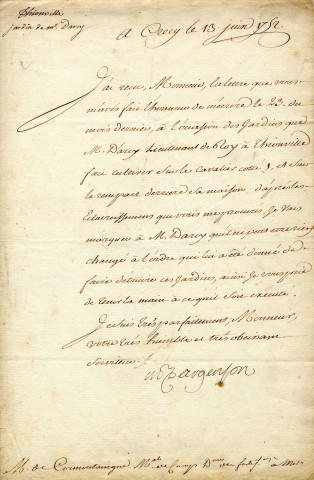 Thionville
Jardin de Mr. Darcy
A Crecy le 13 juin 1752.
J'ai reçu, Monsieur, la lettre que vous
m'avés fait l'honneur de m'écrire le 23. du
mois dernier, à l'occasion des Jardins que
M. Darcy Lieutenant de Roy à Thionville
fait cultiver sur le cavalier cotté 1, et sur
le rempart derrière sa maison. D'après les
Eclaircissemens que vous me procurés, Je vais
marquer à M. Darcy qu'il ne peut être rien
changé à l'ordre que lui a été donné de
faire détruire ces Jardins, ainsi Je vous prie
de tenir la main à ce qu'il soit executé.
Je suis très parfaitement, Monsieur,
votre très humble et très obeissant
serviteur
M. Dargenson
M. de Cormontaingne Mal. de Camp Dr. de fortif. à Metz